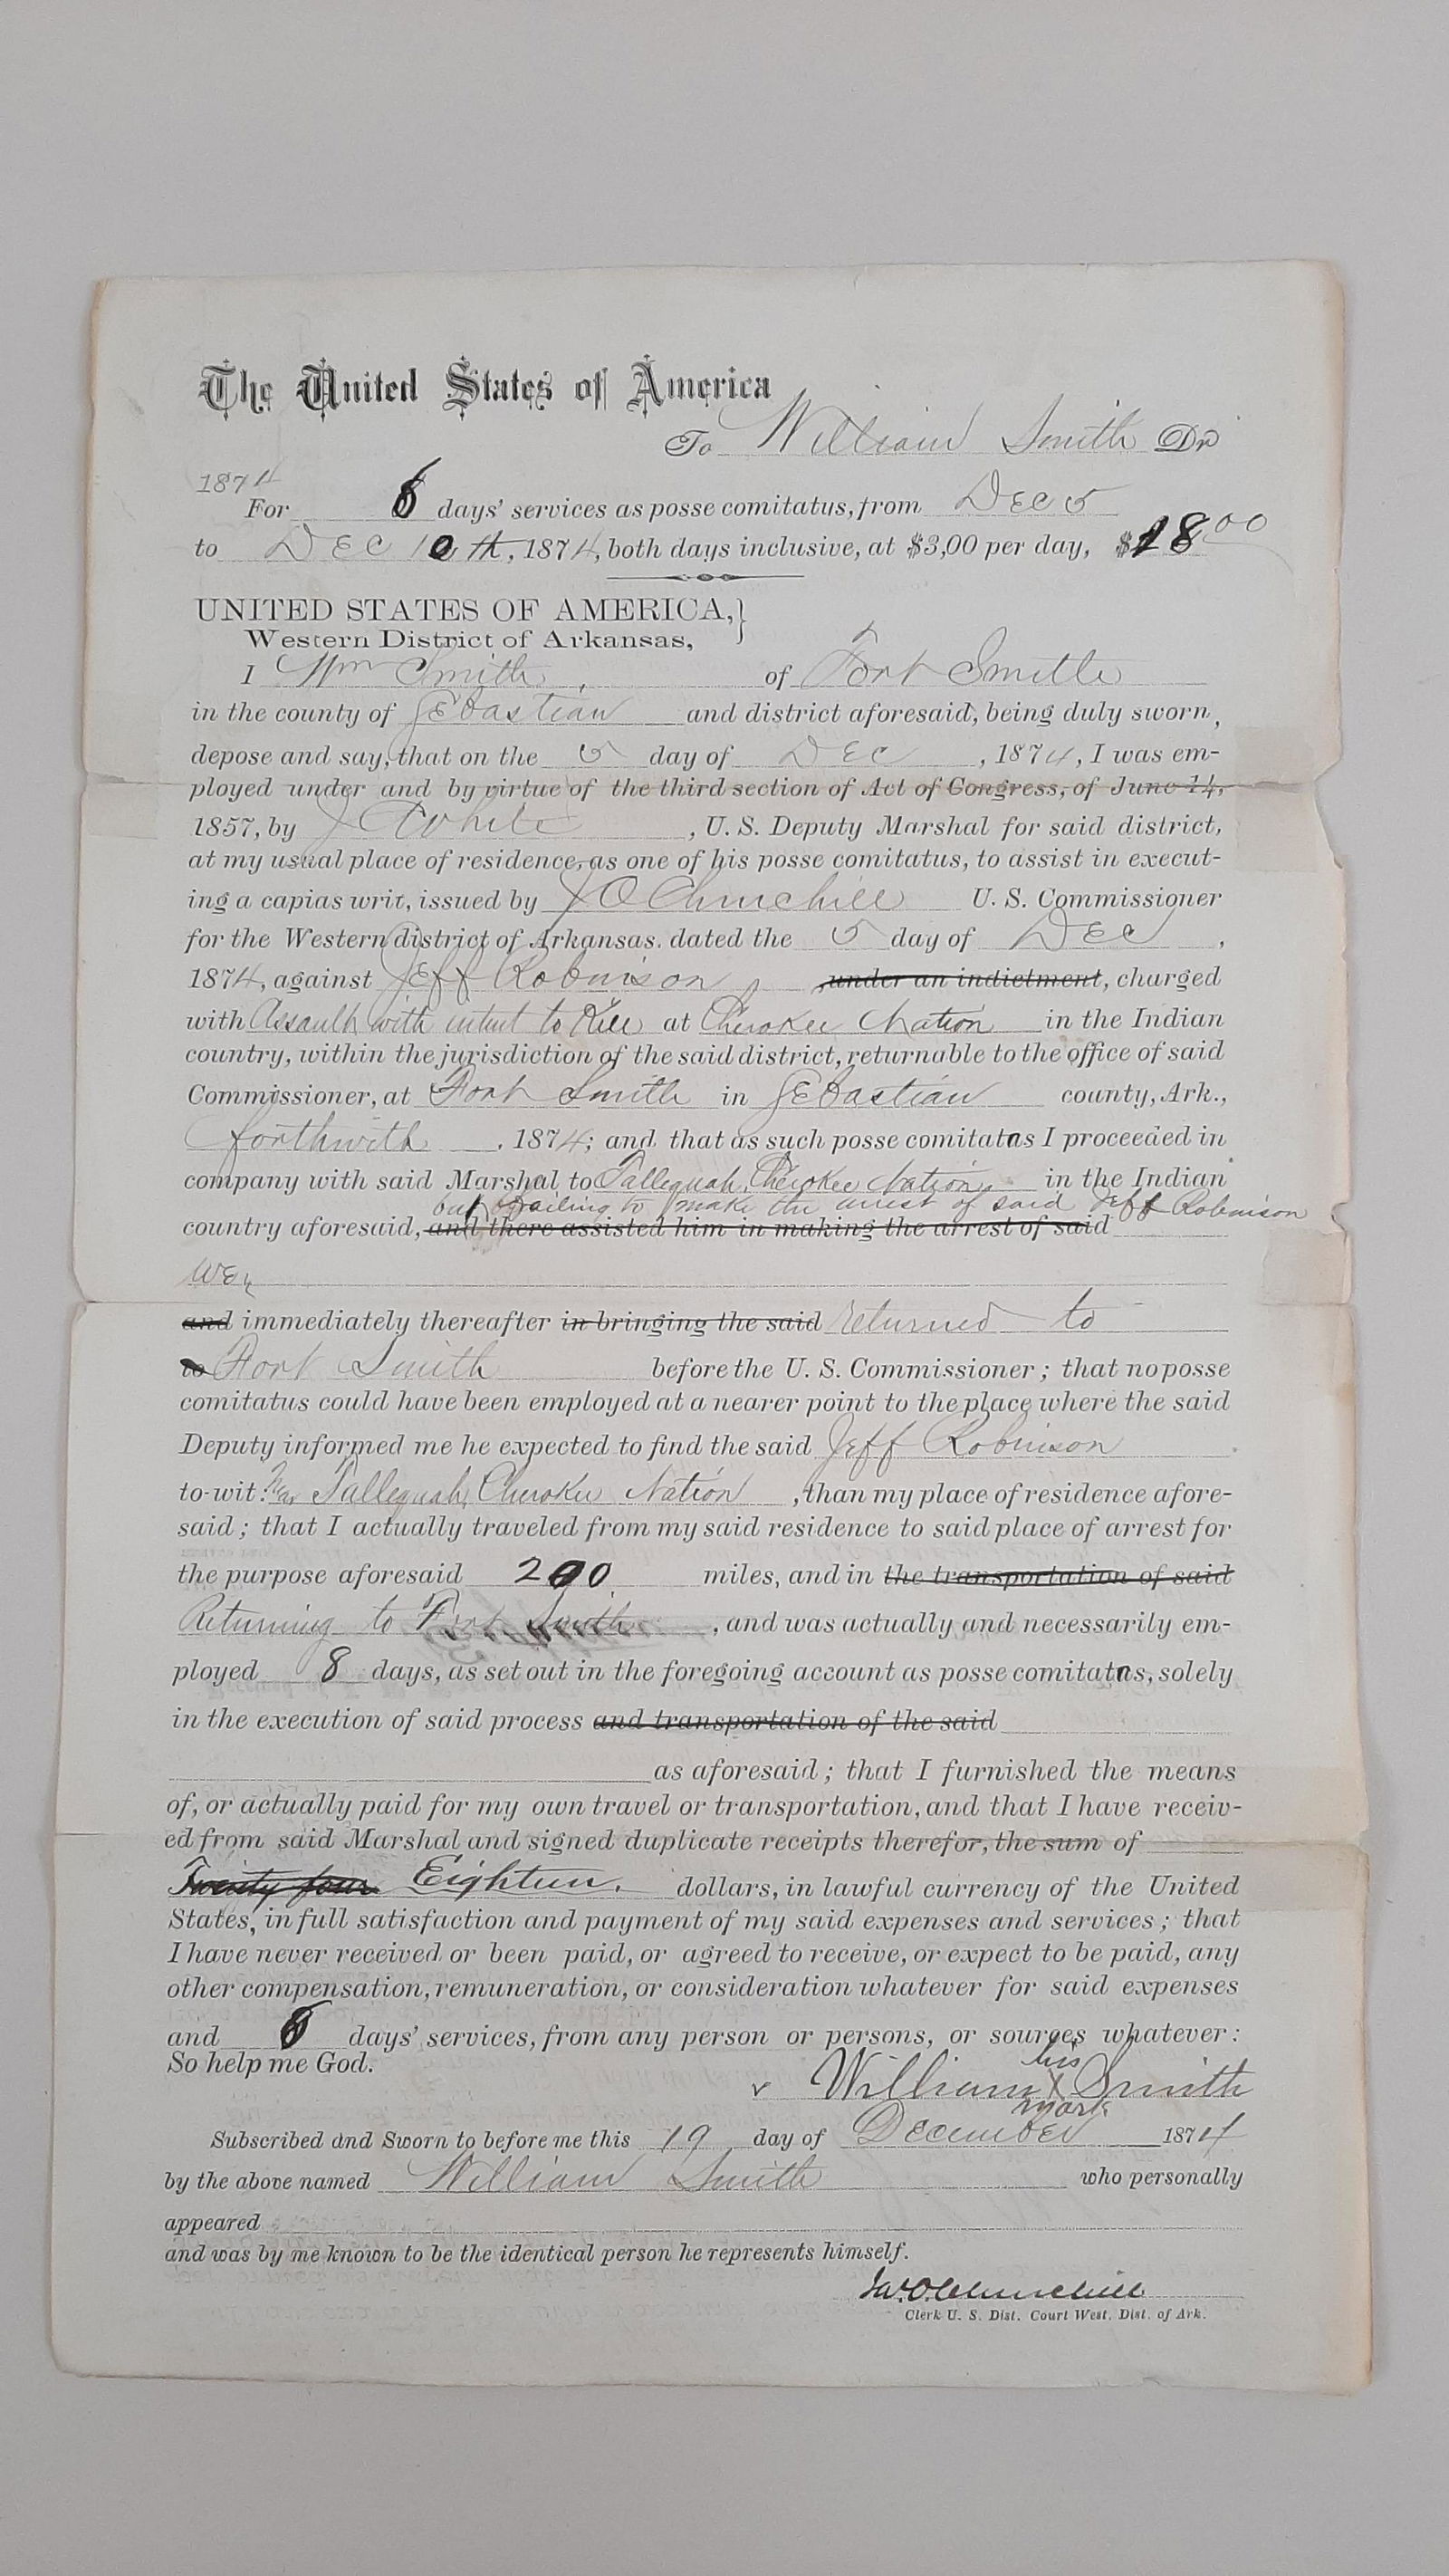 The United States of America
To William Smith Dr
1874
For 6 days' services as posse comitatus, from Dec 5
to Dec 10th, 1874, both days inclusive, at $3,00 per day, $18.00
UNITED STATES OF AMERICA,}
Western District of Arkansas,
I Wm Smith, of Fort Smith
in the county of Sebastian and district aforesaid, being duly sworn,
depose and say, that on the 5 day of Dec, 1874, I was em-
ployed under and by virtue of the third section of Act of Congress, of June 14,
1857, by J C White, U. S. Deputy Marshal for said district,
at my usual place of residence, as one of his posse comitatus, to assist in execut-
ing a capias writ, issued by J O Churchill U. S. Commissioner
for the Western district of Arkansas. dated the 5 day of Dec,
1874, against Jeff Robinson, under an indictment, charged
with Assault with intent to Kill at Cherokee Nation in the Indian
country, within the jurisdiction of the said district, returnable to the office of said
Commissioner, at Fort Smith in Sebastian county, Ark.,
forthwith. 1874; and that as such posse comitatus I proceeded in
company with said Marshal to Tallequah, Cherokee Nation in the Indian
but failing to make the arrest of said Jeff Robinson
country aforesaid, and there assisted him in making the arrest of said
we
and immediately thereafter in bringing the said returned to
to Fort Smith before the U. S. Commissioner; that no posse
comitatus could have been employed at a nearer point to the place where the said
Deputy informed me he expected to find the said Jeff Robinson
to-wit: Near Tallequah, Cherokee Nation, than my place of residence afore-
said; that I actually traveled from my said residence to said place of arrest for
the purpose aforesaid 200 miles, and in the transportation of said
Returning to Fort Smith, and was actually and necessarily em-
ployed 8 days, as set out in the foregoing account as posse comitatus, solely
in the execution of said process and transportation of the said
as aforesaid; that I furnished the means
of, or actually paid for my own travel or transportation, and that I have receiv-
ed from said Marshal and signed duplicate receipts therefor, the sum of
Twenty four Eighteen. dollars, in lawful currency of the United
States, in full satisfaction and payment of my said expenses and services; that
I have never received or been paid, or agreed to receive, or expect to be paid, any
other compensation, remuneration, or consideration whatever for said expenses
and 6 days' services, from any person or persons, or sources whatever:
So help me God.
his
William X Smith
mark
Subscribed and Sworn to before me this 19 day of December 1874
by the above named William Smith who personally
appeared
and was by me known to be the identical person he represents himself.
Jas. O. Churchill
Clerk U. S. Dist. Court West. Dist. of Ark.